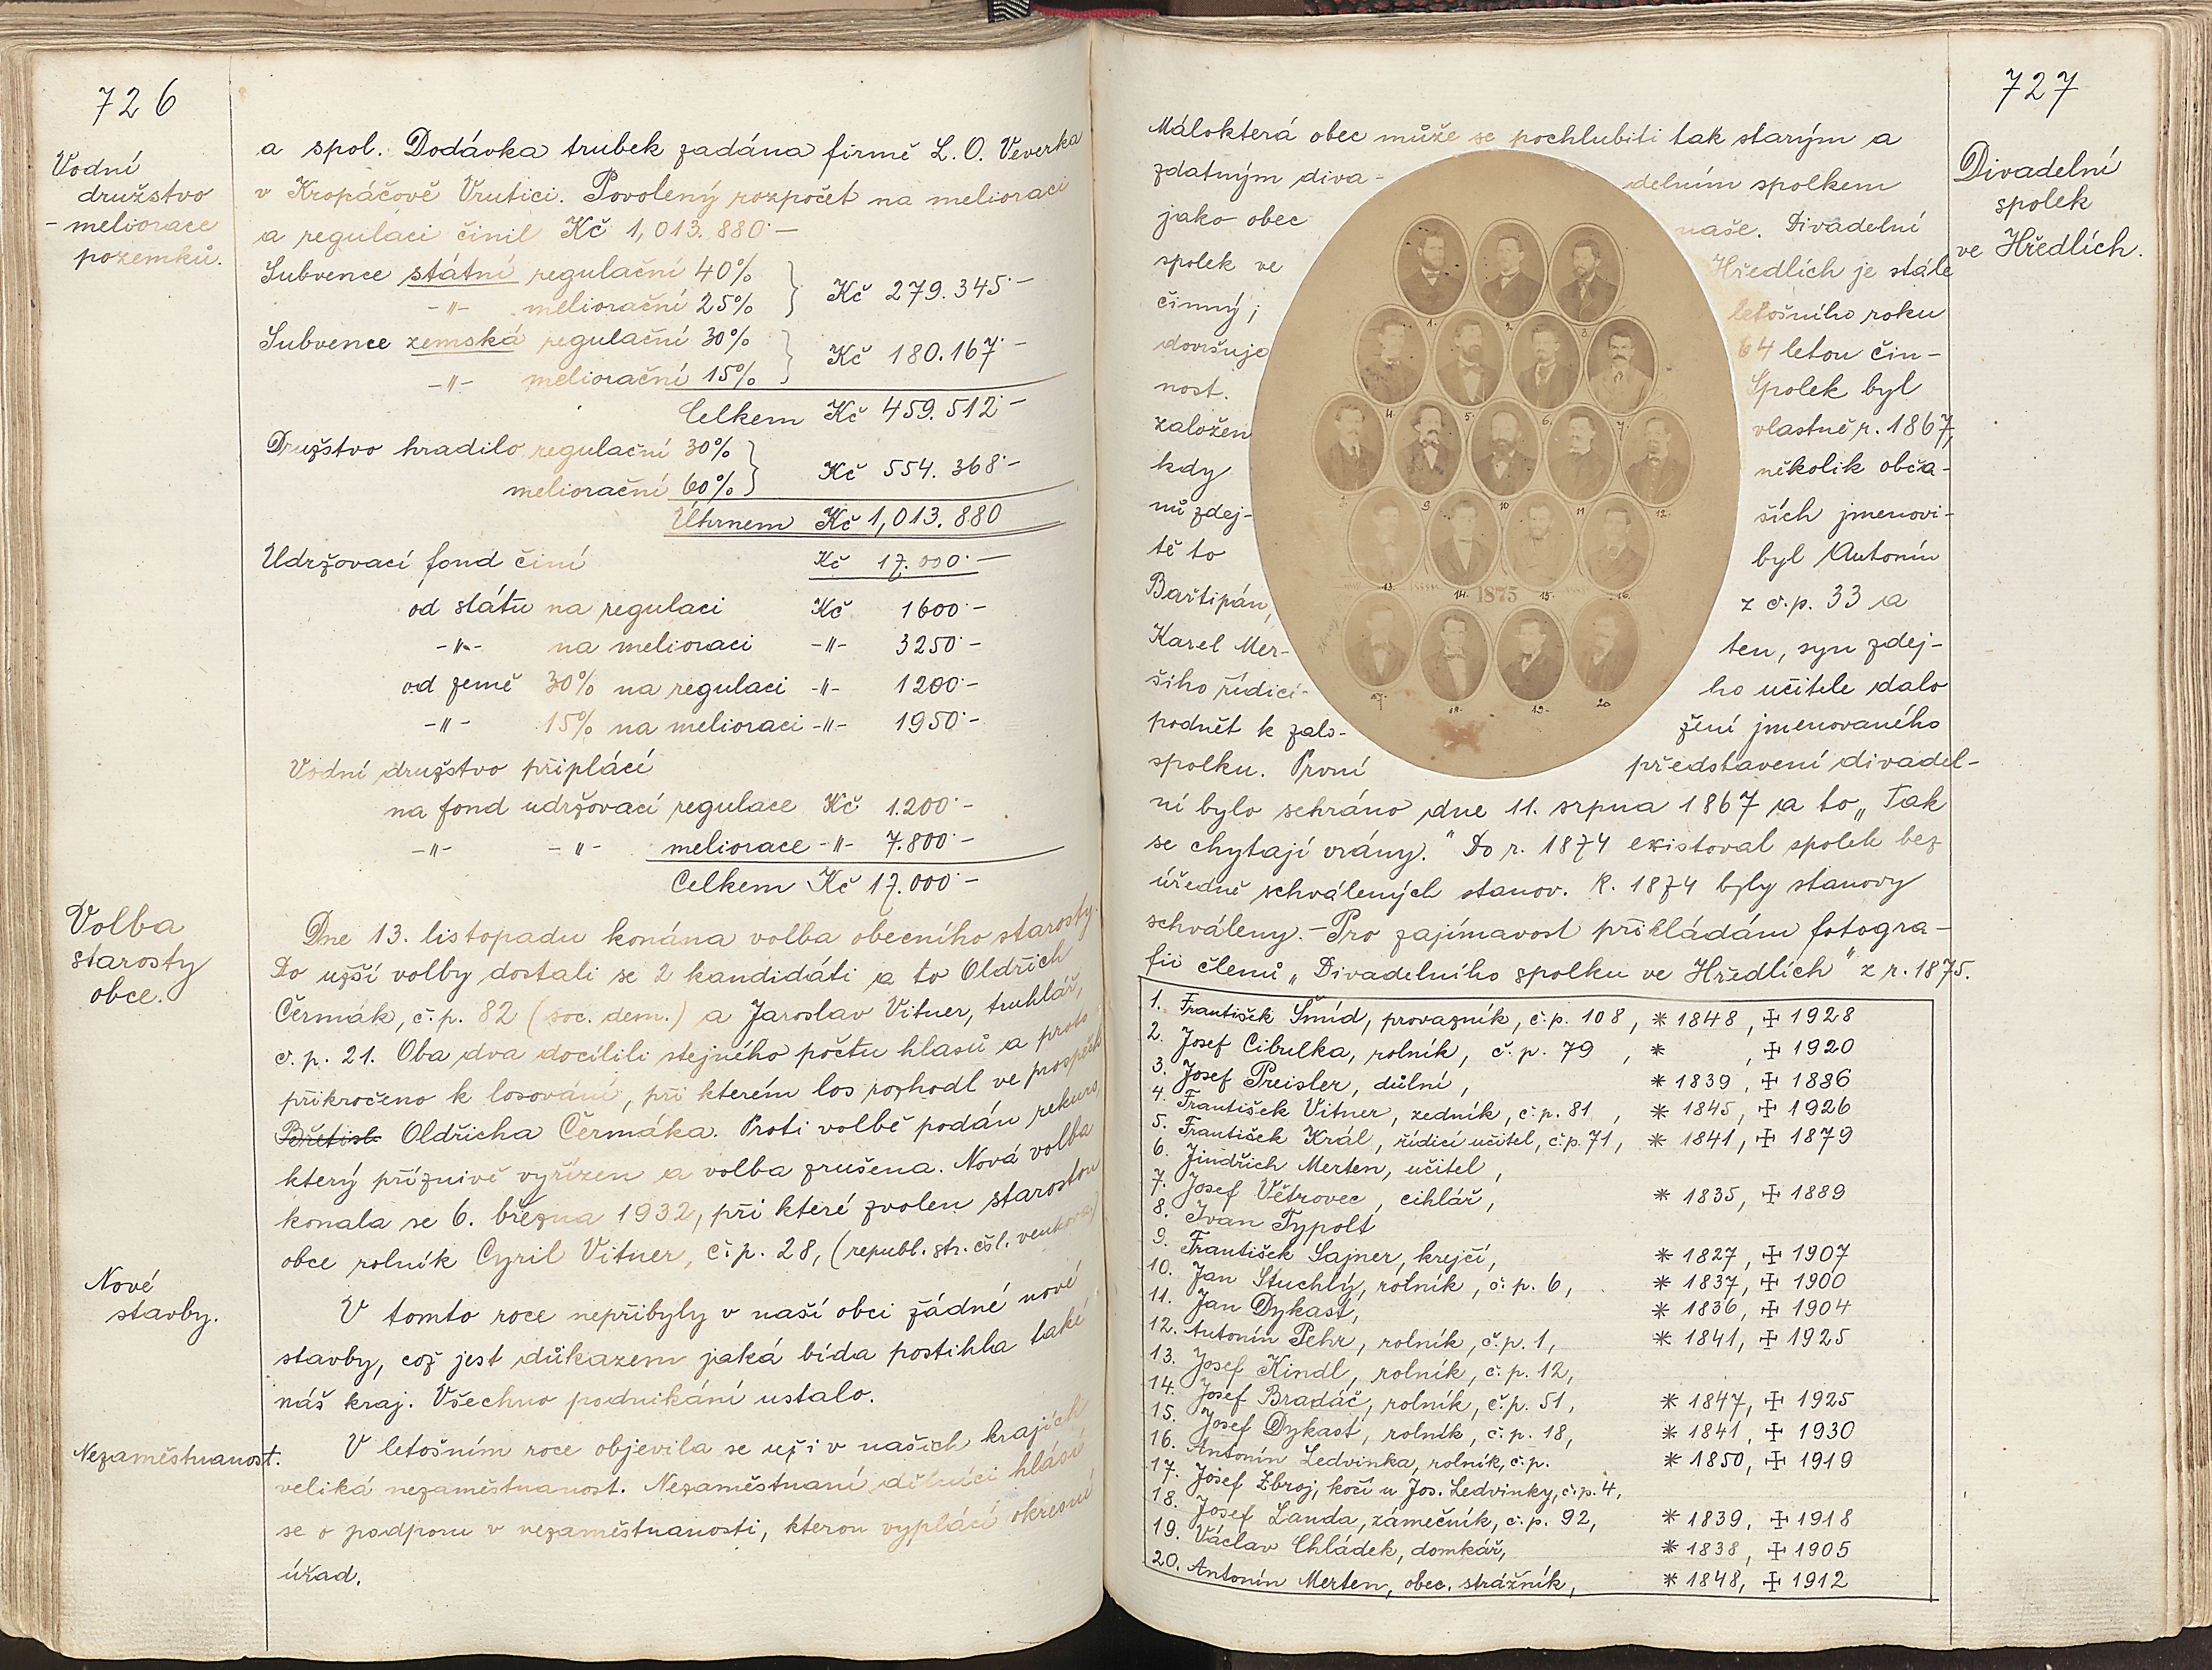 726
Vodní
družstvo
- meliorace
pozemků.
a spol. Dodávka trubek zadána firmě L. O. Veverka
v Kropáčově Vrutici. Povolený rozpočet na melioraci
a regulaci činil Kč 1,013.880·—
Subvence státní regulační 40%
-"- meliorační 25% } Kč 279.345·—
Subvence zemská regulační 30%
-"- meliorační 15% } Kč 180.167·—
Celkem Kč 459.512·—
Družstvo hradilo regulační 30%
meliorační 60% } Kč 554.368·—
Úhrnem Kč 1,013.880
Udržovací fond činí Kč 17.000·—
od státu na regulaci Kč 1600·—
-"- na melioraci -"- 3250·—
od země 30% na regulaci -"- 1200·—
-"- 15% na melioraci -"- 1950·—
Vodní družstvo připlácí
na fond udržovací regulace Kč 1.200·—
-"- -"- meliorace -"- 7.800·—
Celkem Kč 17.000·—
Volba
starosty
obce.
Dne 13. listopadu konána volba obecního starosty.
Do užší volby dostali se 2 kandidáti a to Oldřich
Čermák, č.p. 82 (soc. dem.) a Jaroslav Vitner, truhlář,
č.p. 21. Oba dva docílili stejného počtu hlasů a proto
přikročeno k losování, při kterém los rozhodl ve prospěch
Břetisl. Oldřicha Čermáka. Proti volbě podán rekurs,
který příznivě vyřízen a volba zrušena. Nová volba
konala se 6. března 1932, při které zvolen starostou
obce rolník Cyril Vitner, č.p. 28, (republ. str. čsl. venkova.)
Nové
stavby.
V tomto roce nepřibyly v naší obci žádné nové
stavby, což jest důkazem jaká bída postihla také
náš kraj. Všechno podnikání ustalo.
Nezaměstnanost.
V letošním roce objevila se už i v našich krajích
veliká nezaměstnanost. Nezaměstnaní dělníci hlásí
se o podporu v nezaměstnanosti, kterou vyplácí okresní
úřad.
727
Divadelní
spolek
ve Hředlích.
Málokterá obec může se pochlubiti tak starým a
zdatným diva- delním spolkem
jako obec naše. Divadelní
spolek ve Hředlích je stále
činný; letošního roku
dovršuje 64 letou čin-
nost. Spolek byl
založen vlastně r. 1867,
kdy několik obča-
nů zdej- ších jmenovi-
tě to byl Antonín
Bartipán, z č.p. 33 a
Karel Mer- ten, syn zdej-
šího řídicí- ho učitele dalo
podnět k zalo- žení jmenovaného
spolku. První představení divadel-
ní bylo sehráno dne 11. srpna 1867 a to „Tak
se chytají vrány." Do r. 1874 existoval spolek bez
úředně schválených stanov. R. 1874 byly stanovy
schváleny. - Pro zajímavost přikládám fotogra-
fii členů „Divadelního spolku ve Hředlích" z r. 1875.
1. 2. 3.
4. 5. 6. 7.
8. 9. 10. 11. 12.
13. 14. 1875 15. 16.
17. 18. 19. 20
1. František Šmíd, provazník, č.p. 108, * 1848, ✠ 1928
2. Josef Cibulka, rolník, č.p. 79, * , ✠ 1920
3. Josef Preisler, důlní, * 1839, ✠ 1886
4. František Vitner, zedník, č.p. 81, * 1845, ✠ 1926
5. František Král, řídicí učitel, č.p. 71, * 1841, ✠ 1879
6. Jindřich Merten, učitel,
7. Josef Větrovec, cihlář, * 1835, ✠ 1889
8. Ivan Typolt
9. František Sajner, krejčí, * 1827, ✠ 1907
10. Jan Stuchlý, rolník, č.p. 6, * 1837, ✠ 1900
11. Jan Dykast, * 1836, ✠ 1904
12. Antonín Pehr, rolník, č.p. 1, * 1841, ✠ 1925
13. Josef Kindl, rolník, č.p. 12,
14. Josef Bradáč, rolník, č.p. 51, * 1847, ✠ 1925
15. Josef Dykast, rolník, č.p. 18, * 1841, ✠ 1930
16. Antonín Ledvinka, rolník, č.p. * 1850, ✠ 1919
17. Josef Zbroj, kočí u Jos. Ledvinky, č.p. 4,
18. Josef Landa, zámečník, č.p. 92, * 1839, ✠ 1918
19. Václav Chládek, domkář, * 1838, ✠ 1905
20. Antonín Merten, obec. strážník, * 1848, ✠ 1912